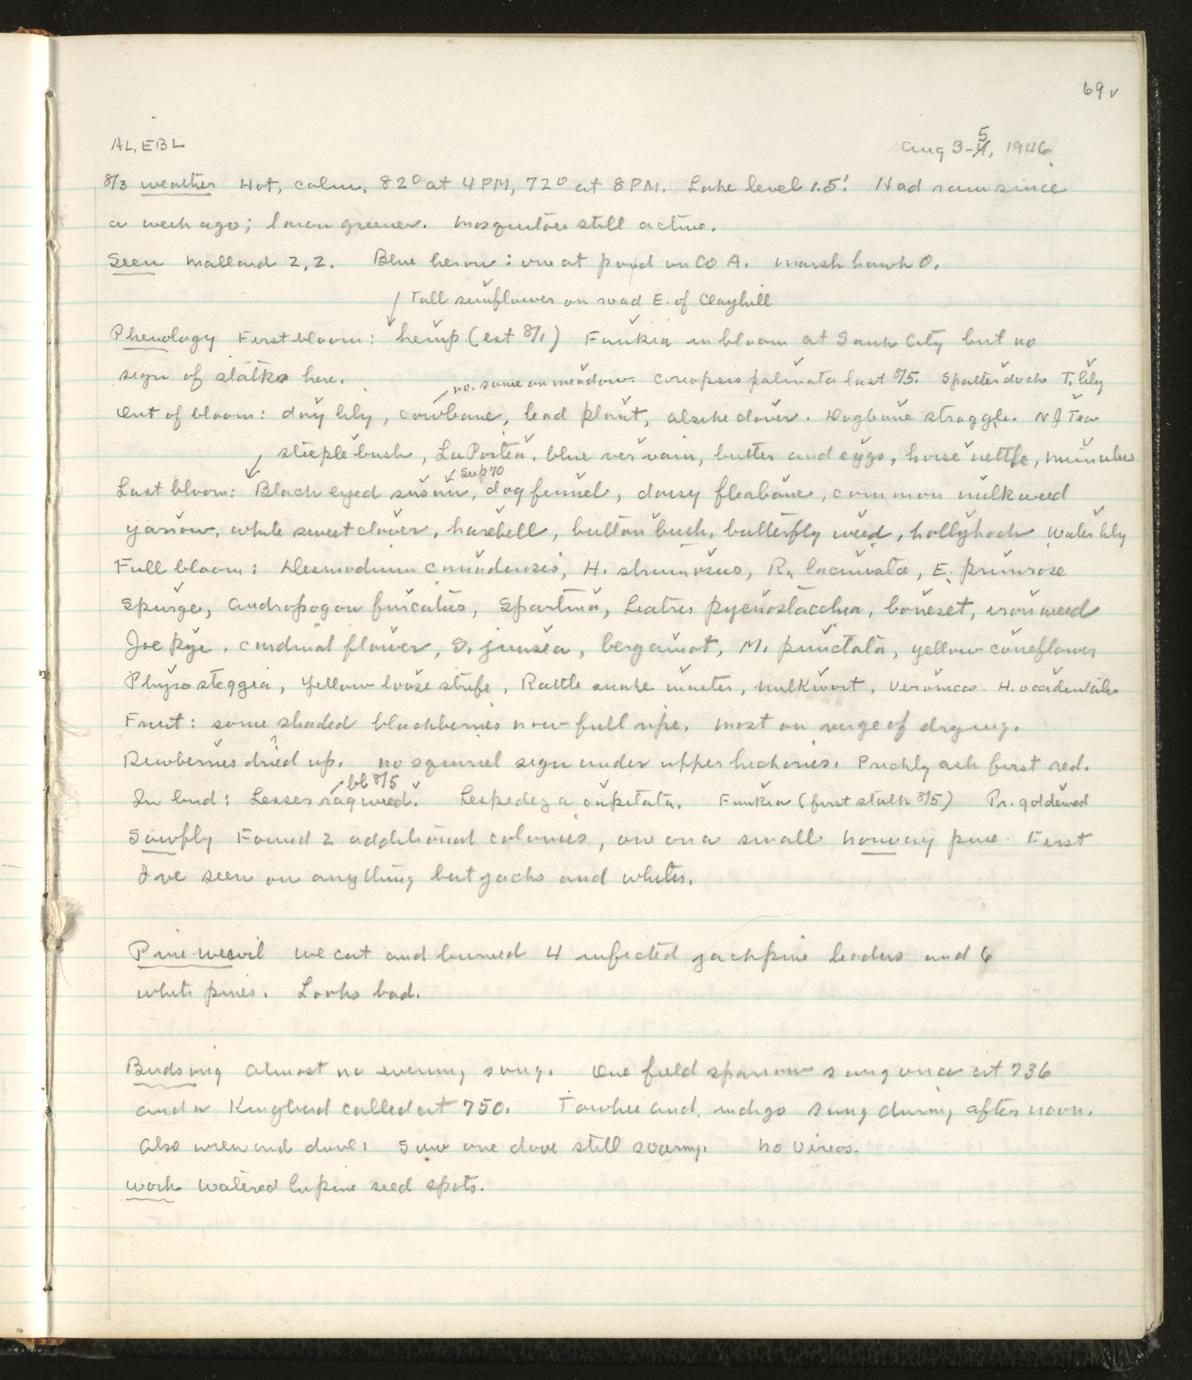 69
AL, EBL Aug 3-5, 1946
8/3 weather Hot, calm, 82° at 4PM, 72° at 8PM. Lake level 1.5! Had rain since
a week ago; lawn greener. Mosquitoes still active.
Seen Mallard 2,2. Blue heron: one at pond on CO A. Marsh hawk 0.
Tall sunflower on road E. of Clayhill
Phenology First bloom: hemp (est 8/1) Funkia in bloom at Sauk City but no
sign of stalks here. no. some on meadow. Coreopsis palmata last 8/5. Spatterdock T. lily
Out of bloom: day lily, cowbane, lead plant, alsike clover. Dogbane straggle. NJ Tea
steeple bush, LaPortea. blue vervain, butter and eggs, horse nettle, mimulus
Sup 70
Last bloom: Black eyed susan, dog fennel, daisy fleabane, common milkweed
yarrow, white sweet clover, harebell, button bush, butterfly weed, hollyhock water lily
Full bloom: Desmodium canadensis, H. strumosus, R. laciniata, E. primrose
Spurge, Andropogon furcatus, Spartina, Liatris pycnostachia, boneset, ironweed
Joe Pye, cardinal flower, S. juncea, bergamot, M. punctata, yellow coneflower
Physosteggia, Yellow loose strife, Rattle snake master, milkwort, Veronica. H. occidentalis
Fruit: some shaded blackberries now full ripe. Most on verge of drying.
Dewberries dried up. no squirrel sign under upper hickories. Prickly ash first red.
bb 8/5
In bud: Lesser ragweed. Lespedeza capitata. Funkia (first stalk 8/5) Pr. goldenrod
Sawfly Found 2 additional colonies, one on a small Norway pine. First
I've seen on anything but jacks and whites.
Pine weevil We cut and burned 4 infected jackpine leaders and 6
white pines. Looks bad.
Birdsong Almost no evening song. One field sparrow sang once at 736
and a Kingbird called at 750. Towhee and indigo sang during afternoon.
Also wren and dove. Saw one dove still soaring. No vireos.
Work Watered lupine seed spots.